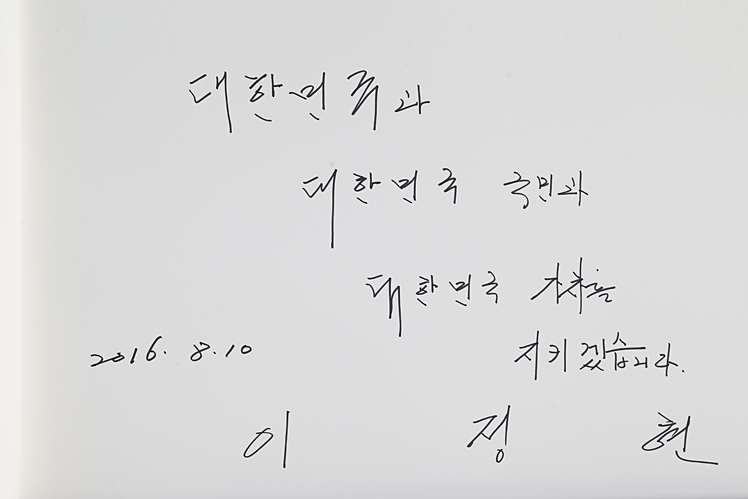 대한민국과
대한민국 국민과
대한민국 가치를
지키겠습니다.
2016. 8. 10
이 정 현